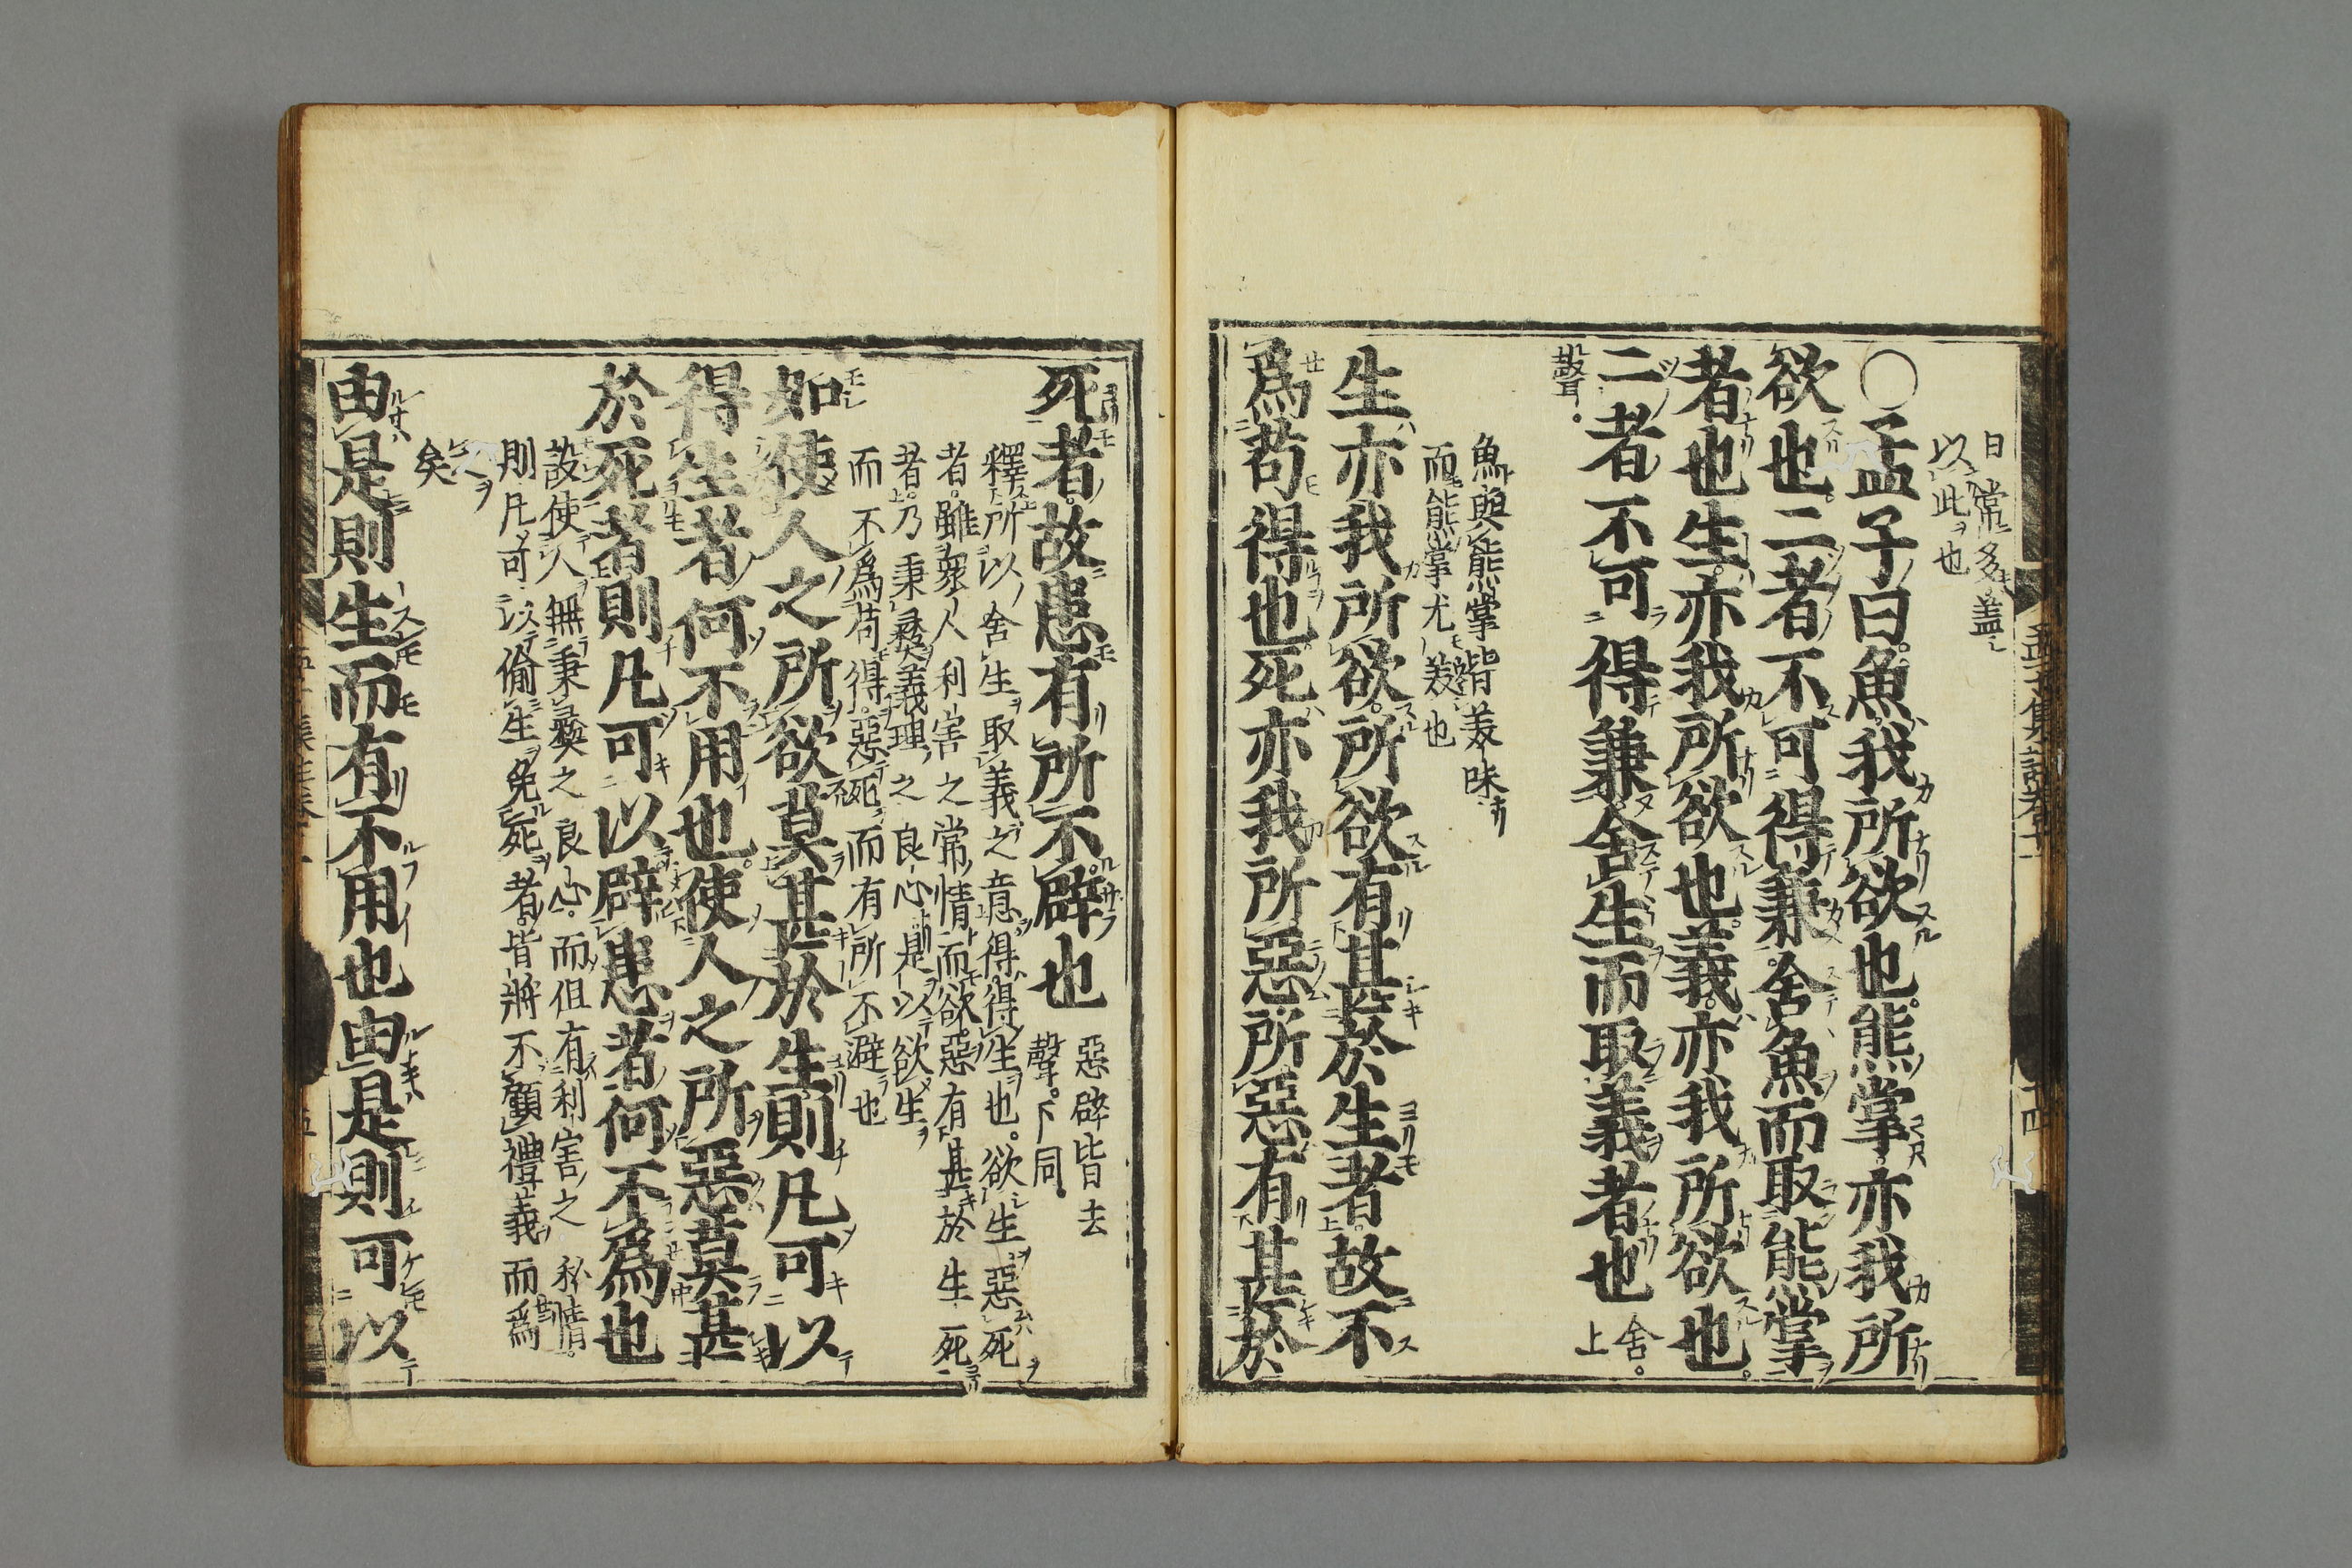 日常多蓋
以此也
○孟子曰魚我所欲也熊掌亦我所
欲也二者不可得兼舍魚而取熊掌
者也生亦我所欲也義亦我所欲也
二者不可得兼舍生而取義者也舍上
聲
魚與熊掌皆美味
而熊掌尤美也
生亦我所欲所欲有甚於生者故不
爲苟得也死亦我所惡所惡有甚於
死者故患有所不辟也惡辟皆去
聲下同
釋所以舍生取義之意得得生也欲生惡死
者雖衆人利害之常情而欲惡有甚於生死
者乃秉彝義理之良心是以欲生
而不爲苟得惡死而有所不避也
如使人之所欲莫甚於生則凡可以
得生者何不用也使人之所惡莫甚
於死者則凡可以辟患者何不爲也
設使人無秉彝之良心而但有利害之私情
則凡可以偷生免死者皆將不顧禮義而爲
之矣
由是則生而有不用也由是則可以